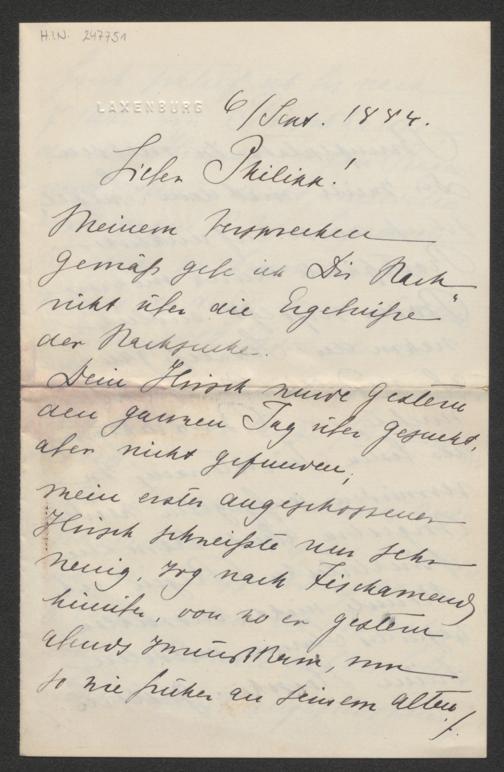 H.I.N. 247751
LAXENBURG
6/Sept. 1884.
Lieber Philipp!
Meinem Versprechen
gemäß gebe ich Dir Nach-
richt über die Ergebniße
der Nachsuche.
Dein Hirsch wurde gestern
den ganzen Tag über gesucht,
aber nicht gefunden;
mein erster angeschossener
Hirsch schweißte nur sehr
wenig, zog nach Fischamend
hinüber, von wo er gestern
abends zurückkam, um
so wie früher an seinem alten
./.